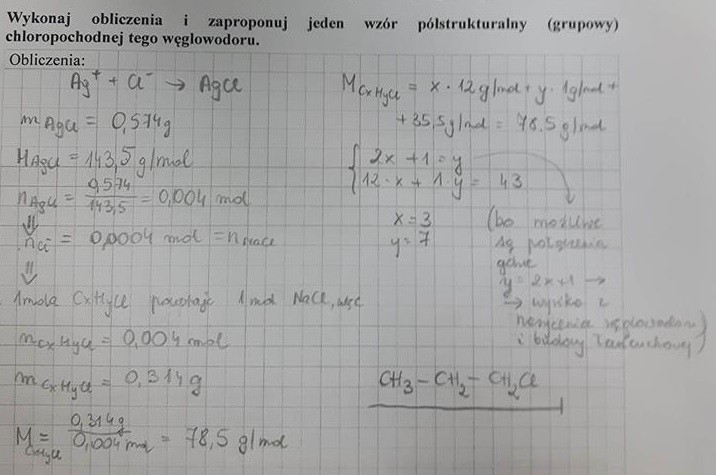 Wykonaj obliczenia i zaproponuj jeden wzór półstrukturalny (grupowy)
chloropochodnej tego węglowodoru.
Obliczenia:
Ag⁺ + Cl⁻ → AgCl
m AgCl = 0,574g
MAgCl = 143,5 g/mol
nAgCl = 0,574/143,5 = 0,004 mol
⇓
nCl⁻ = 0,0004 mol = nNaCl
⇓
1 mola CxHyCl powstaje 1 mol NaCl, więc
nCxHyCl = 0,004 mol
mCxHyCl = 0,314 g
M CxHyCl = 0,314g/0,004 mol = 78,5 g/mol
MCxHyCl = x · 12 g/mol + y · 1g/mol +
+ 35,5 g/mol = 78,5 g/mol
{ 2x + 1 = y
12 · x + 1 · y = 43
x = 3
y = 7
(bo możliwe
są połączenia
gdzie
y = 2x+1 →
→ wynika z
nasycenia węglowodoru
i budowy łańcuchowej)
CH₃ – CH₂ – CH₂Cl